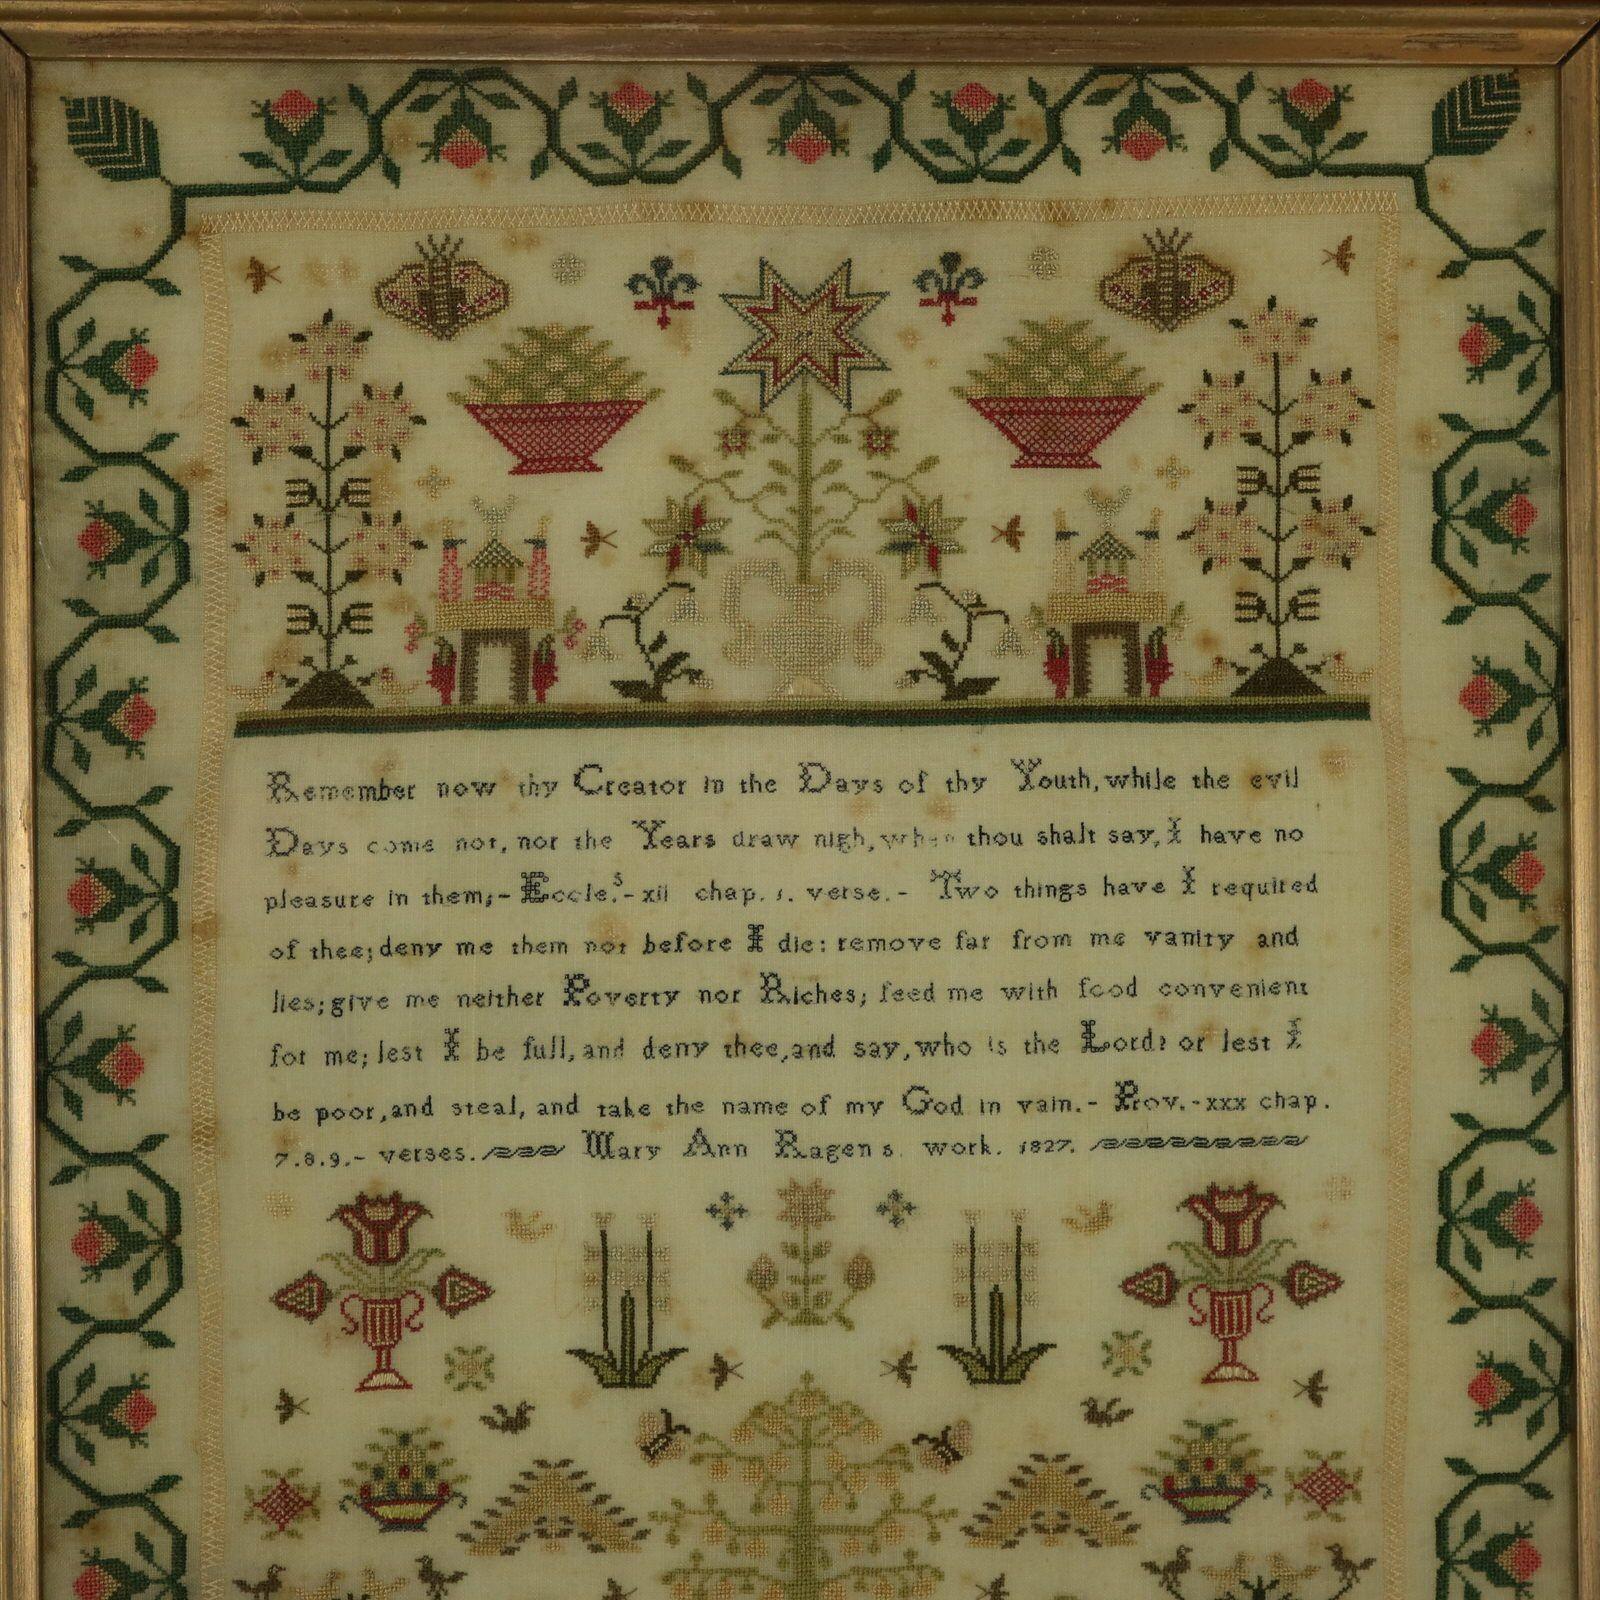 Remember now thy Creator in the Days of thy Youth, while the evil
Days come not, nor the Years draw nigh, when thou shalt say, I have no
pleasure in them;- Eccle.s- xii chap. 1. verse.- Two things have I required
of thee; deny me them not before I die: remove far from me vanity and
lies; give me neither Poverty nor Riches; feed me with food convenient
for me; lest I be full, and deny thee, and say, who is the Lord? or lest I
be poor, and steal, and take the name of my God in vain.- Prov.-xxx chap.
7.8.9.- verses. Mary Ann Ragens work. 1827.